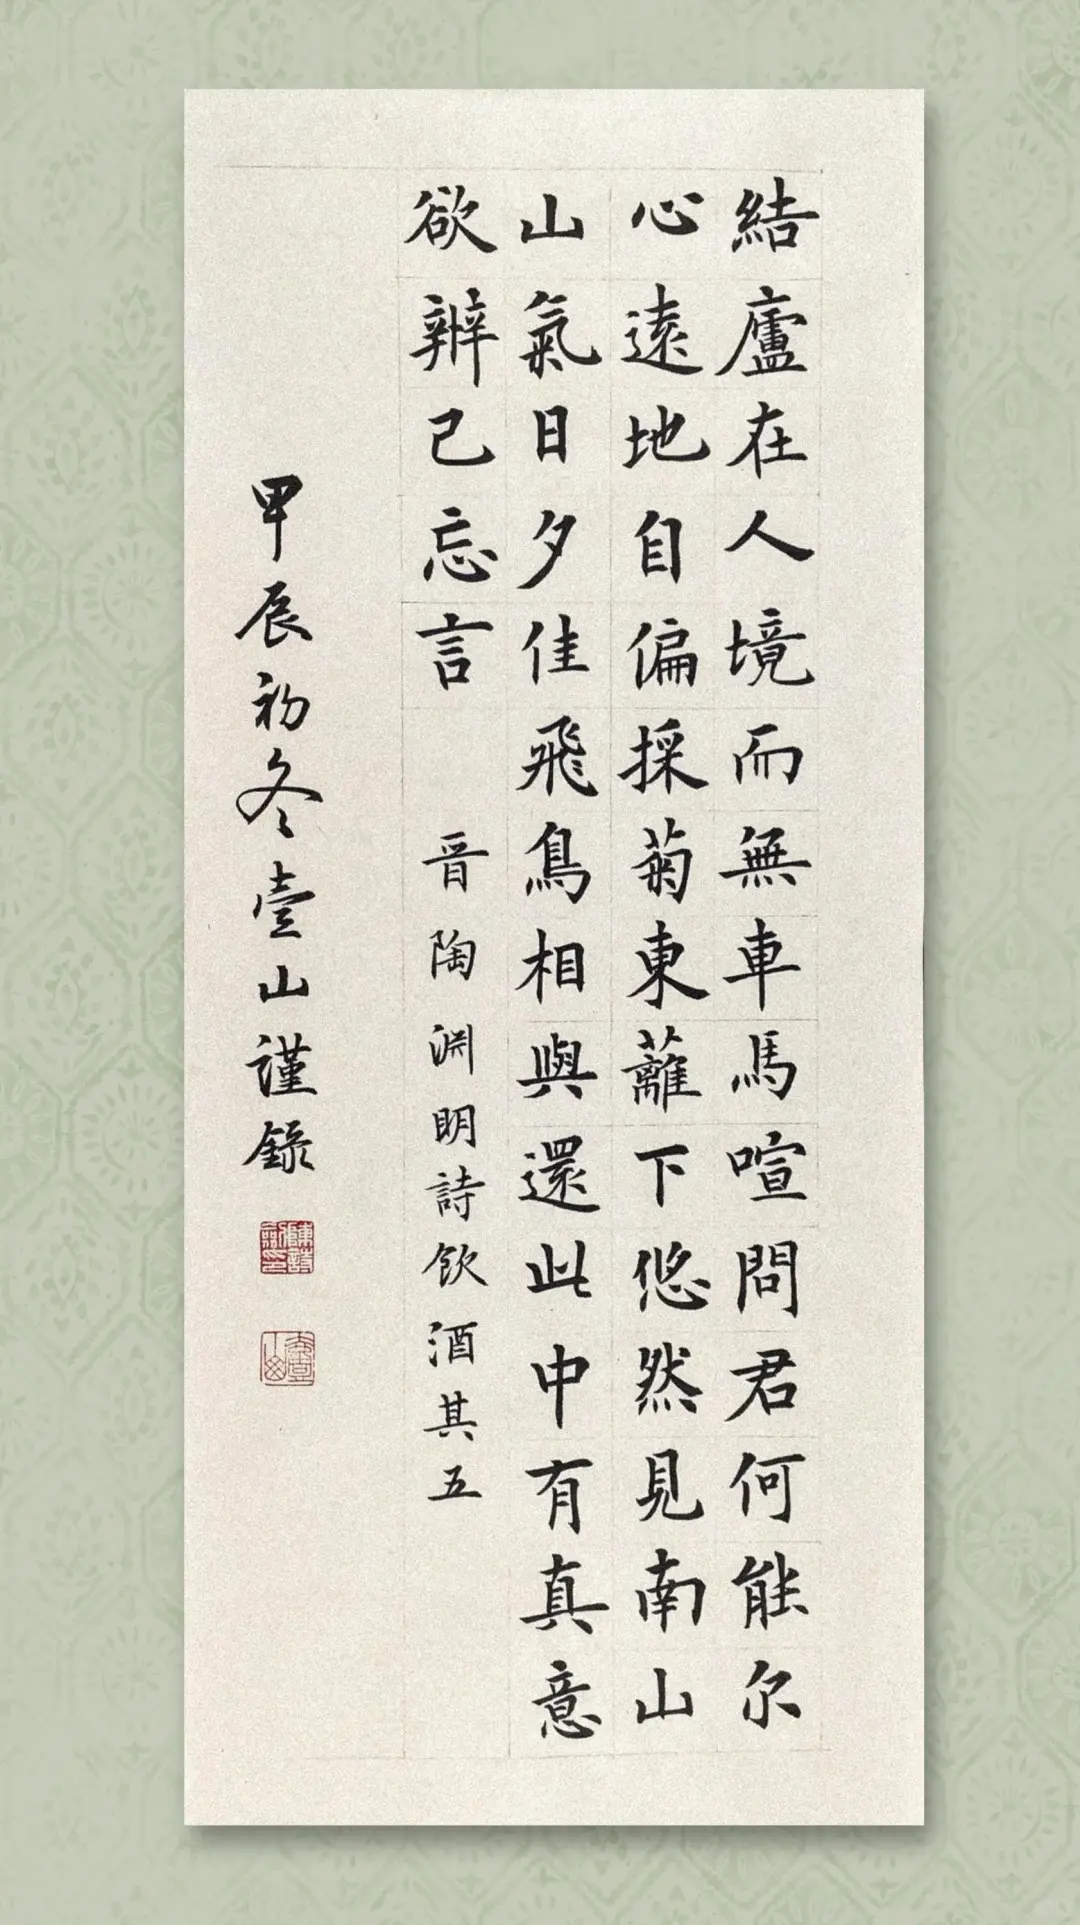 結廬在人境而無車馬喧問君何能尔
心遠地自偏採菊東蘺下悠然見南山
山氣日夕佳飛鳥相與還此中有真意
欲辨己忘言 晋陶淵明詩飲酒其五
甲辰初冬壹山謹錄